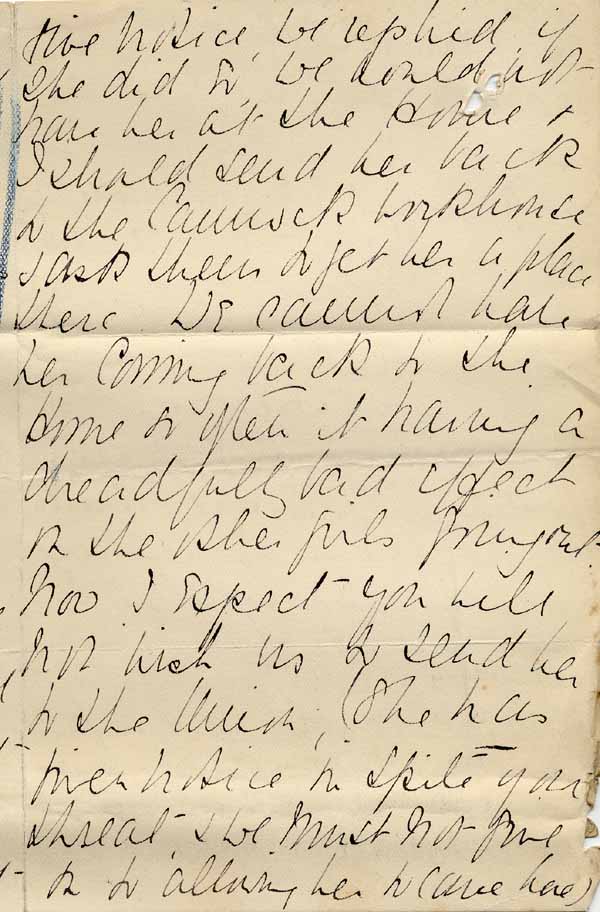 give notice, we replied if
she did so, we could not
have her at the Home &
I should send her back
to the Cannock workhouse
& ask them to get her a place
there. We cannot have
her coming back to the
Home so often it having a
dreadfully bad effect
on the other girls going out.
Now I expect you will
not wish us to send her
to the Union, (She has
given notice in spite of our
threat & we must not give
in to allowing her to come here)